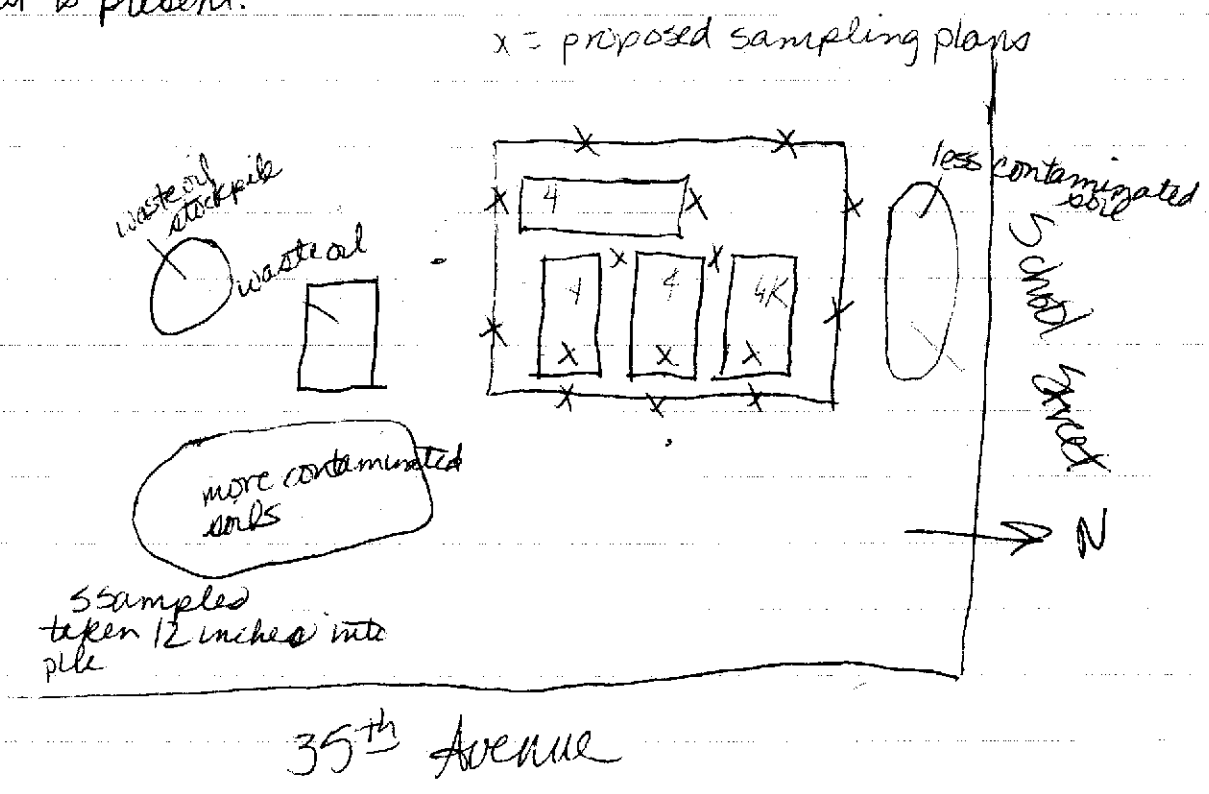 is present.
x = proposed sampling plans
waste oil
stockpile
waste oil
less contaminated
soil
x x
x 4 x x
x x
4 4 4K
x x
x x x
x x x
School Street
more contaminated
soils
N
5 samples
taken 12 inches into
pile
35th Avenue